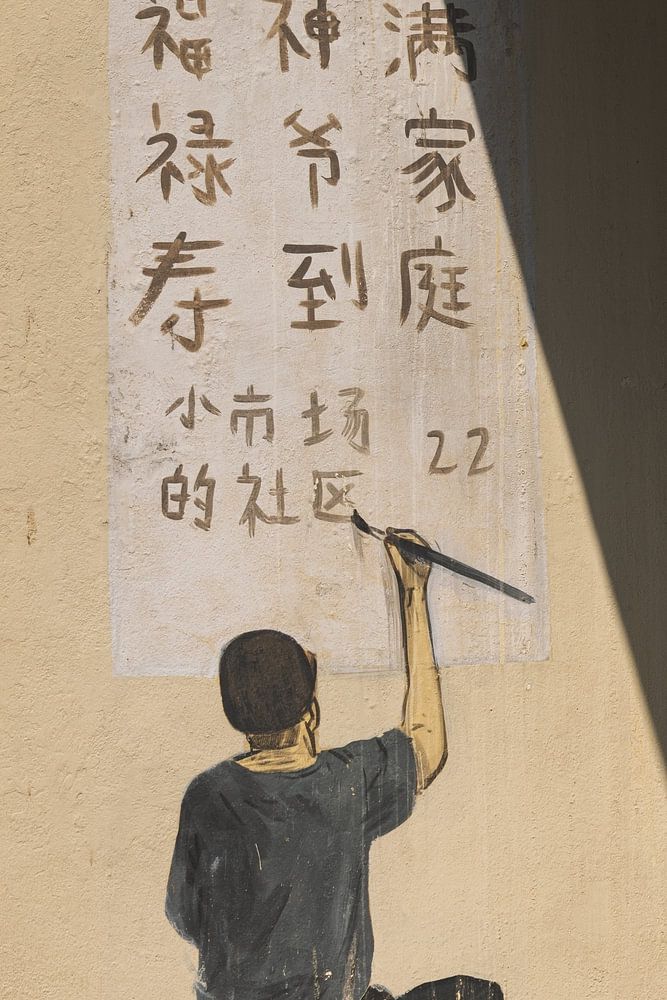 福禄寿
神爷到
满家庭
小市场
的社区
22